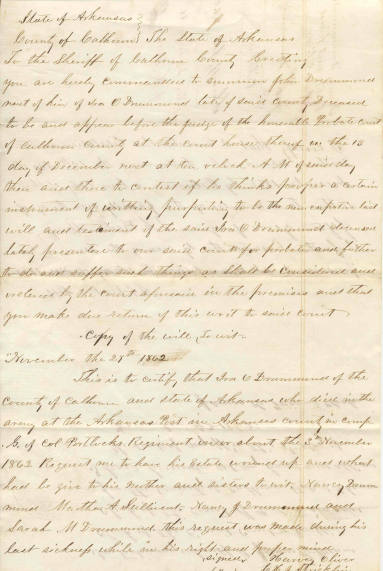 State of Arkansas }
County of Calhoun } The State of Arkansas
To the Sheriff of Calhoun County Greeting
you are hereby commanded to summon John Drummond
next of kin of Ira O Drummond late of said County Deceased
to be and appear before the judge of the honorable Probate court
of Calhoun County at the court house thereof on the 13
day of December next at ten oclock A.M of said day
then and there to contest if he thinks proper a certain
instrument of writing purporting to be the nuncupative last
will and testament of the said Ira O Drummond deceased
lately presented to our said court for probate and further
to do and suffer such things as shall be considered and
ordered by the court aforesaid in the premises and that
you make due return of this writ to said court
Copy of the will, to wit.
November the 27th 1862
This is to certify that Ira O Drummond of the
County of Calhoun and state of Arkansas who died in the
army at the Arkansas Post in Arkansas county in comp
G. of Col Portlocks Regiment on or about the 3rd November
1862 Request me to have his estate wound up and what
he had to give to his Mother and sisters to wit, Nancy Drum
mond Martha A Sullivent, Nancy J Drummond and
Sarah M Drummond this request was made during his
last sickness while in his right and proper mind
signed Harvey Oliver